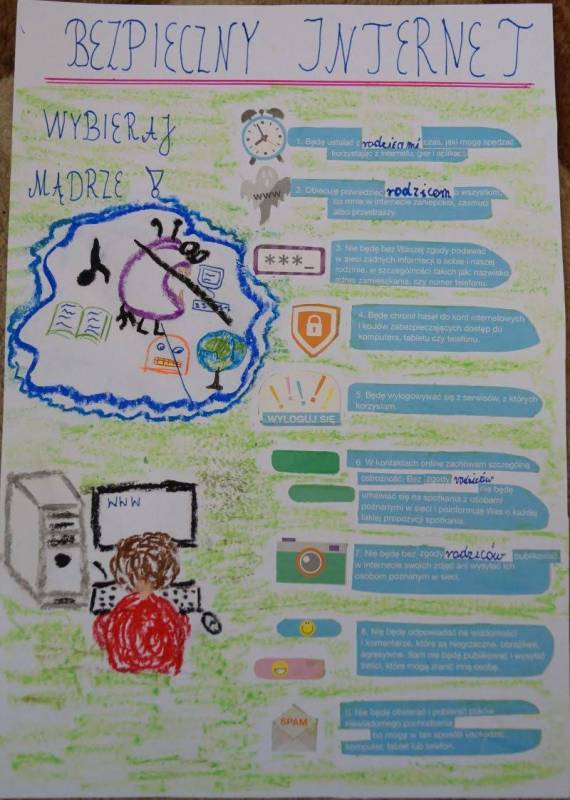 BEZPIECZNY INTERNET
WYBIERAJ
MĄDRZE !
1. Będę ustalać z rodzicami czas, jaki mogę spędzać
korzystając z internetu, gier i aplikacji.
WWW
2. Obiecuję powiedzieć rodzicom o wszystkim,
co mnie w internecie zaniepokoi, zasmuci
albo przestraszy.
***_
3. Nie będę bez Waszej zgody podawać
w sieci żadnych informacji o sobie i naszej
rodzinie, w szczególności takich jak: nazwisko,
adres zamieszkania, czy numer telefonu.
4. Będę chronić haseł do kont internetowych
i kodów zabezpieczających dostęp do
komputera, tabletu czy telefonu.
WYLOGUJ SIĘ
5. Będę wylogowywać się z serwisów, z których
korzystam.
6. W kontaktach online zachowam szczególną
ostrożność. Bez zgody rodziców nie będę
umawiać się na spotkania z osobami
poznanymi w sieci i poinformuję Was o każdej
takiej propozycji spotkania.
WWW
7. Nie będę bez zgody rodziców publikować
w internecie swoich zdjęć ani wysyłać ich
osobom poznanym w sieci.
8. Nie będę odpowiadać na wiadomości
i komentarze, które są niegrzeczne, obraźliwe,
agresywne. Sam nie będę publikować i wysyłać
treści, które mogą zranić inną osobę.
SPAM
9. Nie będę otwierać i pobierać plików
niewiadomego pochodzenia
bo mogą w ten sposób uszkodzić
komputer, tablet lub telefon.